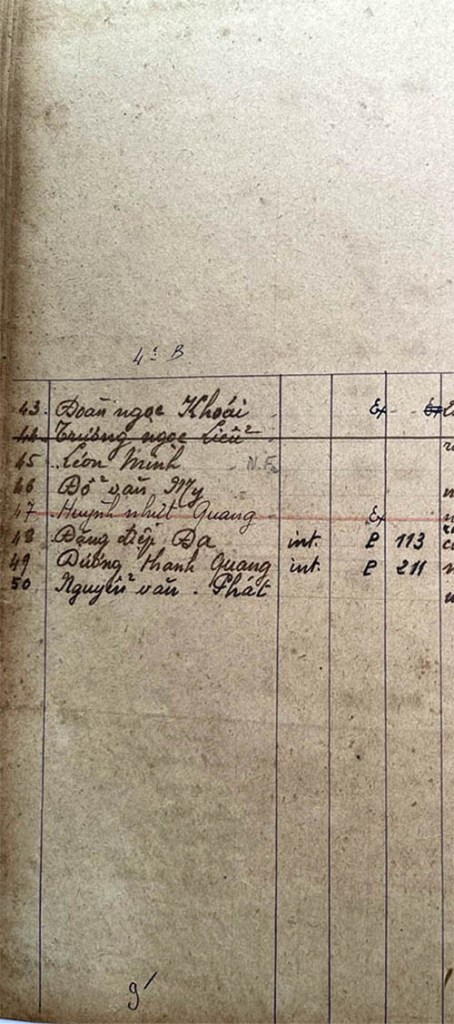 4e B
43. Đoàn ngọc Khoái Ex
44 Trương ngọc Liễu
45 Léon Minh N.F.
46 Đỗ văn My
47 Huỳnh nhứt Quang Ex
48 Đặng điệp Đa int. P 113
49 Dương thanh Quang int. P 211
50 Nguyễn văn. Phát
9